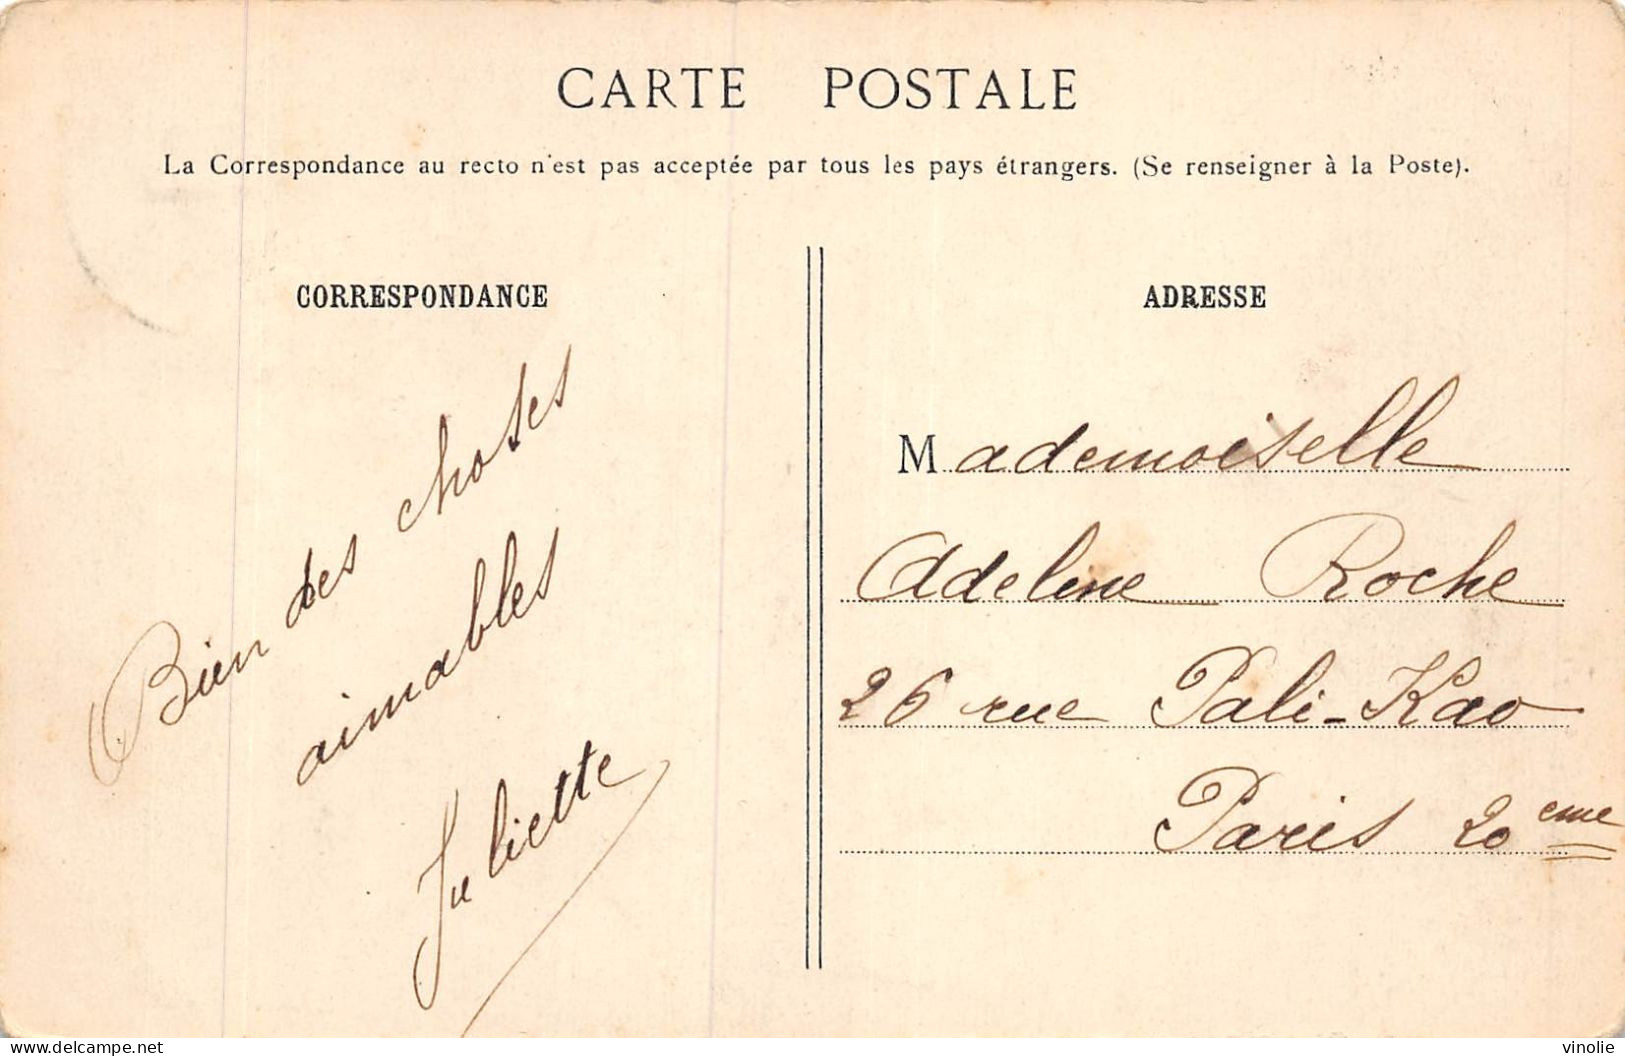 CARTE POSTALE
La Correspondance au recto n'est pas acceptée par tous les pays étrangers. (Se renseigner à la Poste).
CORRESPONDANCE
Bien des choses
aimables
Juliette
ADRESSE
Mademoiselle
Adeline Roche
26 rue Pali-Kao
Paris 20eme
www.delcampe.net
vinolie